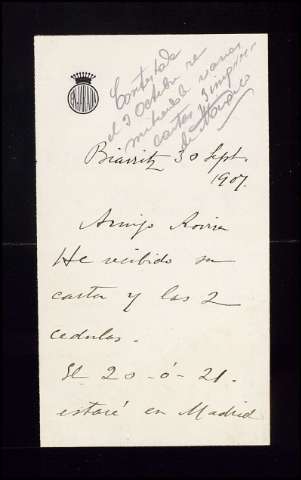 Contestada
el 3 octubre re
varias
cartas
de
Biarritz 30 Sept.
1907.
Amigo Rovira
He recibido su
carta y las 2
cedulas.
El 20 ó 21.
estaré en Madrid